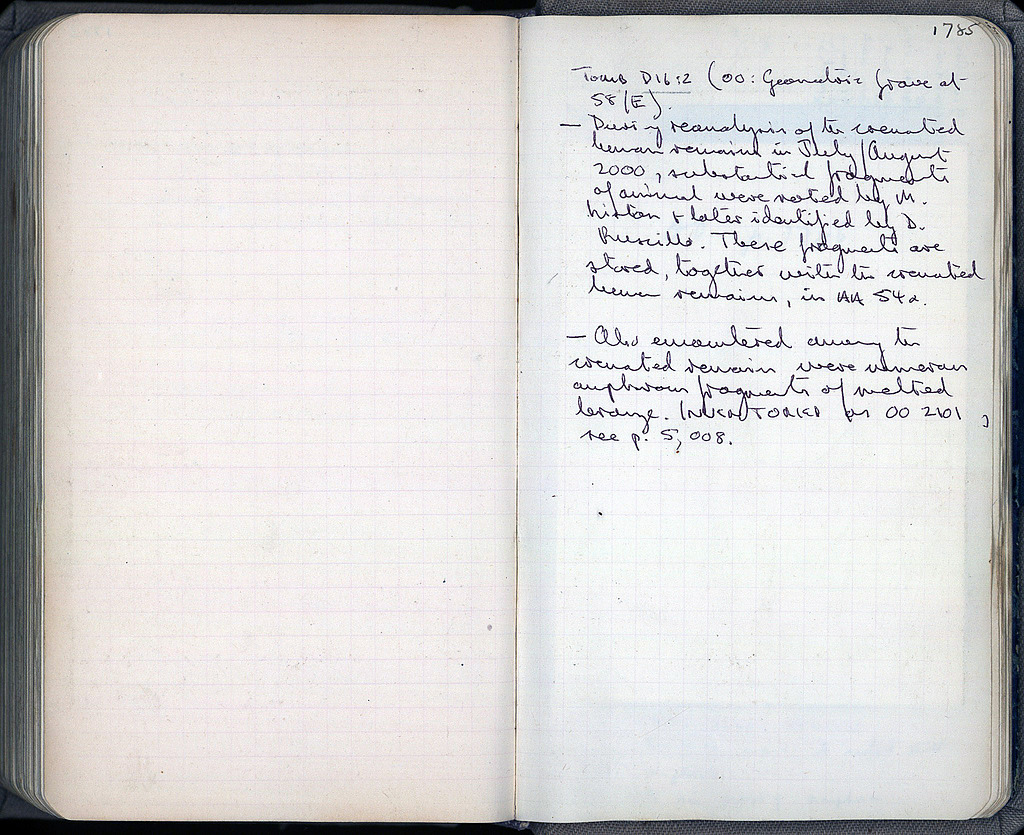 1785
Tomb D16:2 (OO: Geometric grave at
58/E).
— During reanalysis of the cremated
human remains in July/August
2000, substantial fragments
of animal were noted by M.
Liston + later identified by D.
Ruscillo. These fragments are
stored, together with the cremated
human remains, in AA 54a.
— Also encountered among the
cremated remains were numerous
amphorous fragments of melted
bronze. INVENTORIED as OO 2101
see p. 5,008.